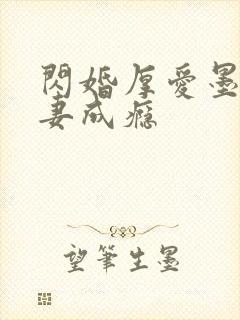 閃婚厚愛墨
妻成瘾
望筆生墨